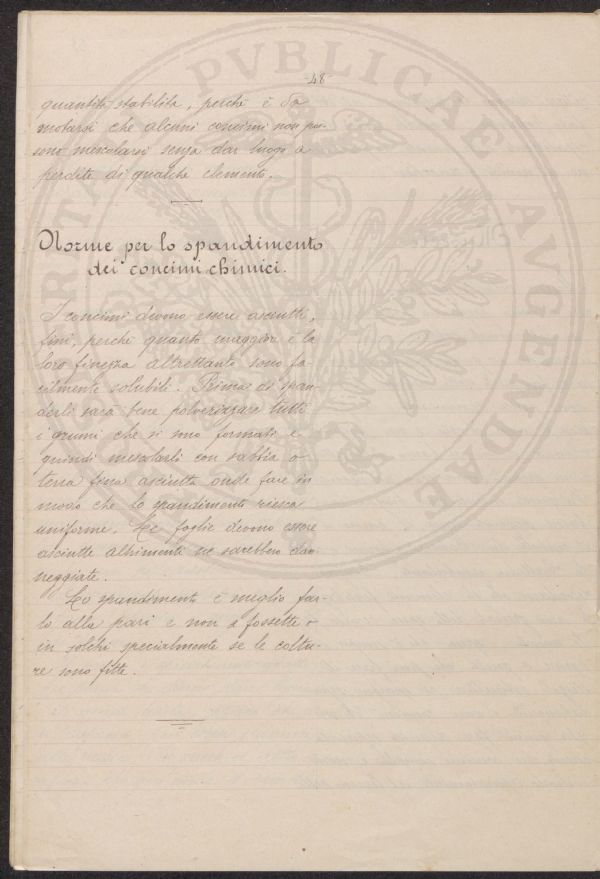 PVBLICAE
AVGENDAE
48
quantità stabilita, perchè è da
notarsi che alcuni concimi non pos-
sono mescolarsi senza dar luogo a
perdite di qualche elemento.
Norme per lo spandimento
dei concimi chimici.
I concimi devono essere asciutti,
fini, perchè quanto maggiore è la
loro finezza altrettanto sono fa-
cilmente solubili. Prima di span-
derli sarà bene polverizzare tutti
i grumi che si sono formati e
quindi mescolarli con sabbia o
terra fina asciutta onde fare in
modo che lo spandimento riesca
uniforme. Le foglie devono essere
asciutte altrimenti ne sarebbero dan-
neggiate.
Lo spandimento è meglio far-
lo alla pari e non a fossette o
in solchi specialmente se le coltu-
re sono fitte.